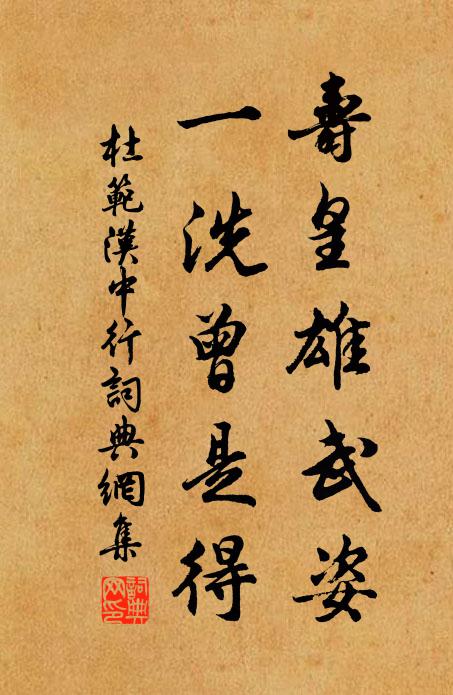 壽皇雄武姿
一洗曾是得
杜範漢中行詞典網集
詞典網印